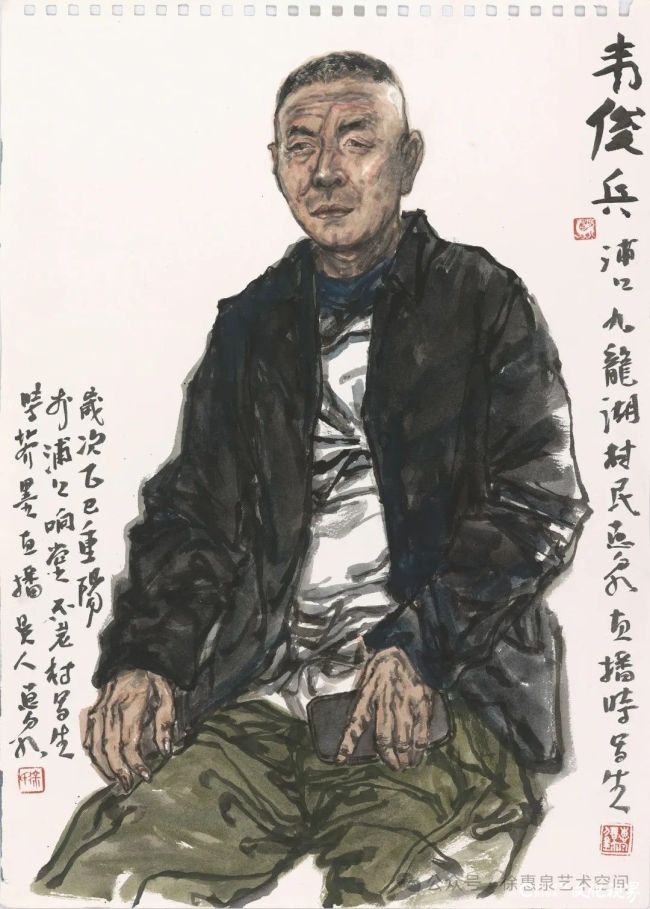 韦俊兵
浦口九龍湖村民惠泉直播時写生
歲次乙巳重陽
於浦口响堂不老村写生
時 墨直播吴人惠泉
公众号 徐惠泉艺术空间